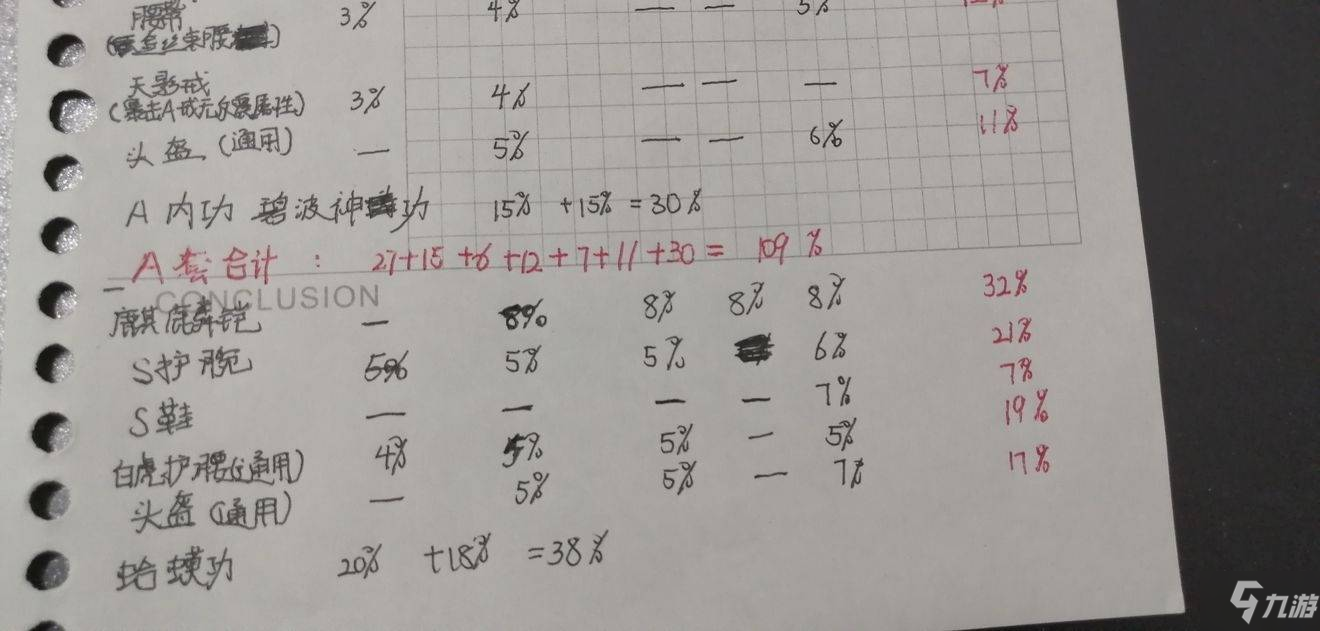 腰带 3% 4% — — 5% 12%
(金丝束腰)
天影戒 3% 4% — — — 7%
(暴击A或元尔覆属性)
头盔(通用) — 5% — — 6% 11%
A内功 碧波神功 15% +15% =30%
A套合计: 27+15+6+12+7+11+30= 109%
CONCLUSION
麒麟铠 — 8% 8% 8% 8% 32%
S护腕 5% 5% 5% 6% 21%
S鞋 — — — — 7% 7%
白虎护腰(通用) 4% 5% 5% — 5% 19%
头盔(通用) — 5% 5% — 7% 17%
蛤蟆功 20% +18% =38%
九游